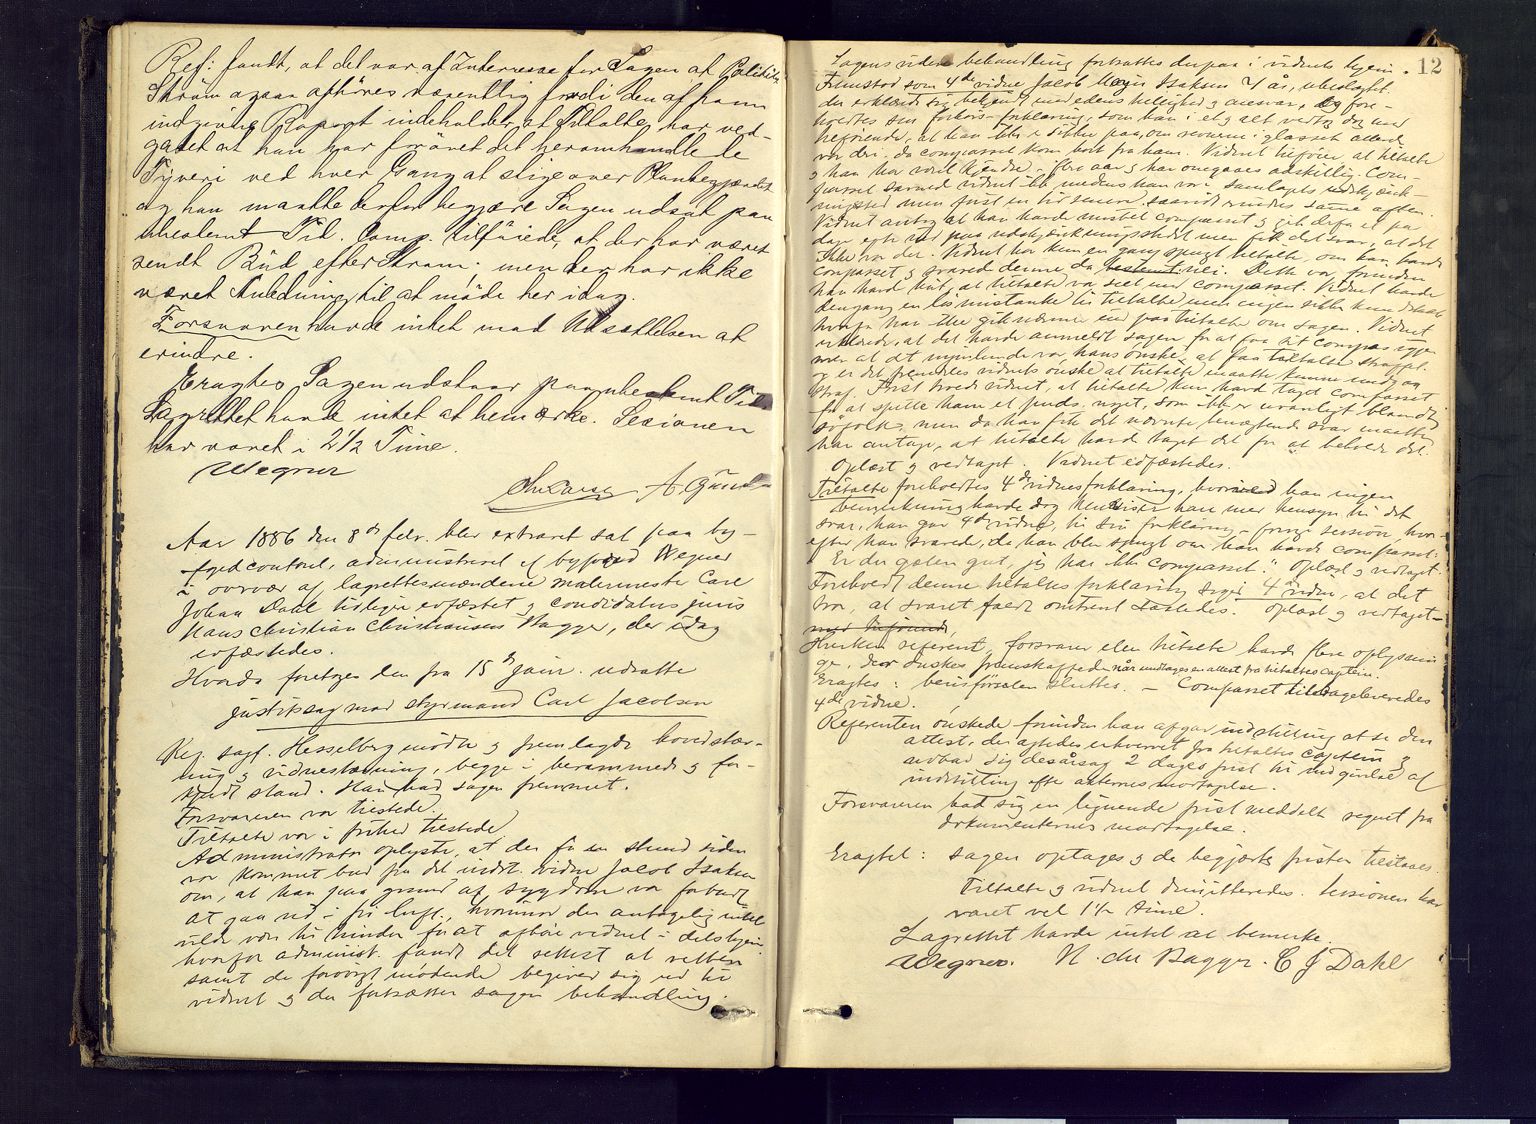 Ref: fandt, at det var af Interesse for Sagen at Politibt.
Skram ogsaa afhöres væsentlig fordi den af ham
indgivne Rapport indeholder at Tiltalte har ved-
gaaet at han har forövet det heromhandlede
Tyveri ved hver Gang at stige over Plankegjærdet
og han maatte derfor begjære Sagen udsat paa
ubestemt Tid. Comp. tilföiede, at der har været
sendt Bud efter Skram; men der har ikke
været Anledning til at möde her idag.
Forsvaren havde intet mod Udsættelsen at
erindre.
Eragtes Sagen udstaar paa ubestemt Tid.
Lagrettet havde intet at bemærke. Sessionen
har varet i 2½ Time.
Wegner
A. Gün
Aar 1886 den 8de febr. blev extraret sat paa by-
fogedcontoret, administreret af byfoged Wegner
i overvær af lagrettesmændene malermester Carl
Johan Dahl tidligere edfæstet og candidatus juris
Hans Christian Christiansen Bagger, der idag
edfæstedes.
Hvorda foretoges den fra 15de jan. udsatte
justitssag mod styrmand Carl Jacobsen
Ref. sagf. Hesselberg mödte og fremlagde hovedstæv-
ning og vidnestævning, begge i berammed og for-
kyndt stand. Han bad sagen fremmet.
Forsvareren var tilstede.
Tiltalte var i frihed tilstede.
Administrator oplyste, at der for en stund siden
var kommet bud fra det indst. vidne Jacob Isaksen
om, at han paa grund af sygdom var forbudt
at gaa ud i fri luft, hvorimod der antagelig intet
vilde være til hinder for at afhöre vidnet i dets hjem
hvorfor administ. fandt det rettest at retten
samt de forövrigt mödende begiver sig ud til
vidnet og der fortsætter sagens behandling.
12
Sagens videre behandling fortsattes derpaa i vidnets hjem.
Fremstod som 4de vidne Jacob Isaksen 7 år, ubeslægtet.
der erklærede sig bekjendt med edens hellighed og ansvar, og fore-
holdtes sin forhörs-forklaring, som han i et og alt vedtog dog med
tilföiende, at han ikke er sikker paa, om revnerne i glasset allerede
var deri, da compasset kom bort fra ham. Vidnet tilföier, at tiltalte
og han har været kjendte i flere aar og har omgaaes adskillig. Com-
passet savned vidnet ikke medens han var i samlagets udskjænk-
ningssted men först en tid senere samme aften.
Vidnet antog at han havde mistet compasset og gik derfor et par
dage efter ned paa udskjænkningsstedet men fik det svar, at det
ikke var der. Vidnet har kun en gang spurgt tiltalte, om han havde
compasset og svared denne da bestemt nei. Dette var forinden
han havde hört, at tiltalte var seet med compasset. Vidnet havde
dengang en lös mistanke til tiltalte men ingen sikker
hvorfor han ikke gik nærmere ind paa tiltalte om sagen. Vidnet
erklærede, at det havde anmeldt sagen for at faa sit compas igjen
men at det ingenlunde var hans önske, at faa tiltalte straffet
og er det fremdeles vidnets önske at tiltalte maatte kunne undgaa
straf. Först troede vidnet, at tiltalte kun havde taget compasset
for at spille ham et puds, noget, som ikke er uvanligt blandt
söfolk, men da han fik det nævnte benægtende svar maatte
han antage, at tiltalte havde taget det for at beholde det.
Oplæst og vedtaget. Vidnet edfæstedes.
Tiltalte foreholdtes 4de vidnes forklaring, hvorved han ingen
bemærkning havde dog henviser han med hensyn til det
svar, han gav 4de vidne, til sin forklaring i forrige session, hvor-
efter han svarede, da han blev spurgt om han havde compasset:
"Er du galen gut, jeg har ikke compasset." Oplæst og vedtaget.
Foreholdt denne tiltaltes forklaring siger 4de vidne, at det
tror, at svaret faldt omtrent saaledes. Oplæst og vedtaget
med tilföiende
Hverken referent, forsvarer eller tiltalte havde flere oplysnin-
ger, der önskes fremskaffede når undtages en attest fra tiltaltes captein.
Eragtes: beviisförselen sluttes. – Compasset tilbageleveredes
4de vidne.
Referenten önskede forinden han afgav indstilling at se den
attest, der agtedes erhvervet fra tiltaltes captein og
udbad sig desårsag 2 dages frist til indgivelse af
indstilling efter akternes modtagelse.
Forsvareren bad sig en lignende frist meddelt regnet fra
dokumenternes modtagelse.
Eragtet: sagen optages og de begjærte frister tilstaaes.
Tiltalte og vidnet dimitteredes. Sessionen har
varet vel 1½ time.
Lagrettet havde intet at bemerke.
Wegner. H. Chr Bagger. C J Dahl